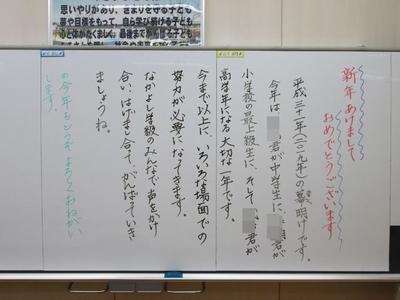 思いやりがあり、きまりを守る子ども
夢や目標をもって、自ら学び続ける子ども
心と体がたくましく、最後までがんばる子ども
新年あけまして
おめでとうございます
平成三十一年(二〇一九年)の幕明けです。
今年は 君が中学生に、 君が
小学校の最上級生に、そして 君が
高学年になる大切な一年です。
今まで以上に、いろいろな場面での
努力が必要になってきます。
なかよし学級のみんなで、声をかけ
合い、はげまし合って、がんばっていき
ましょうね。
今年もどうぞよろしくおねがい
します。